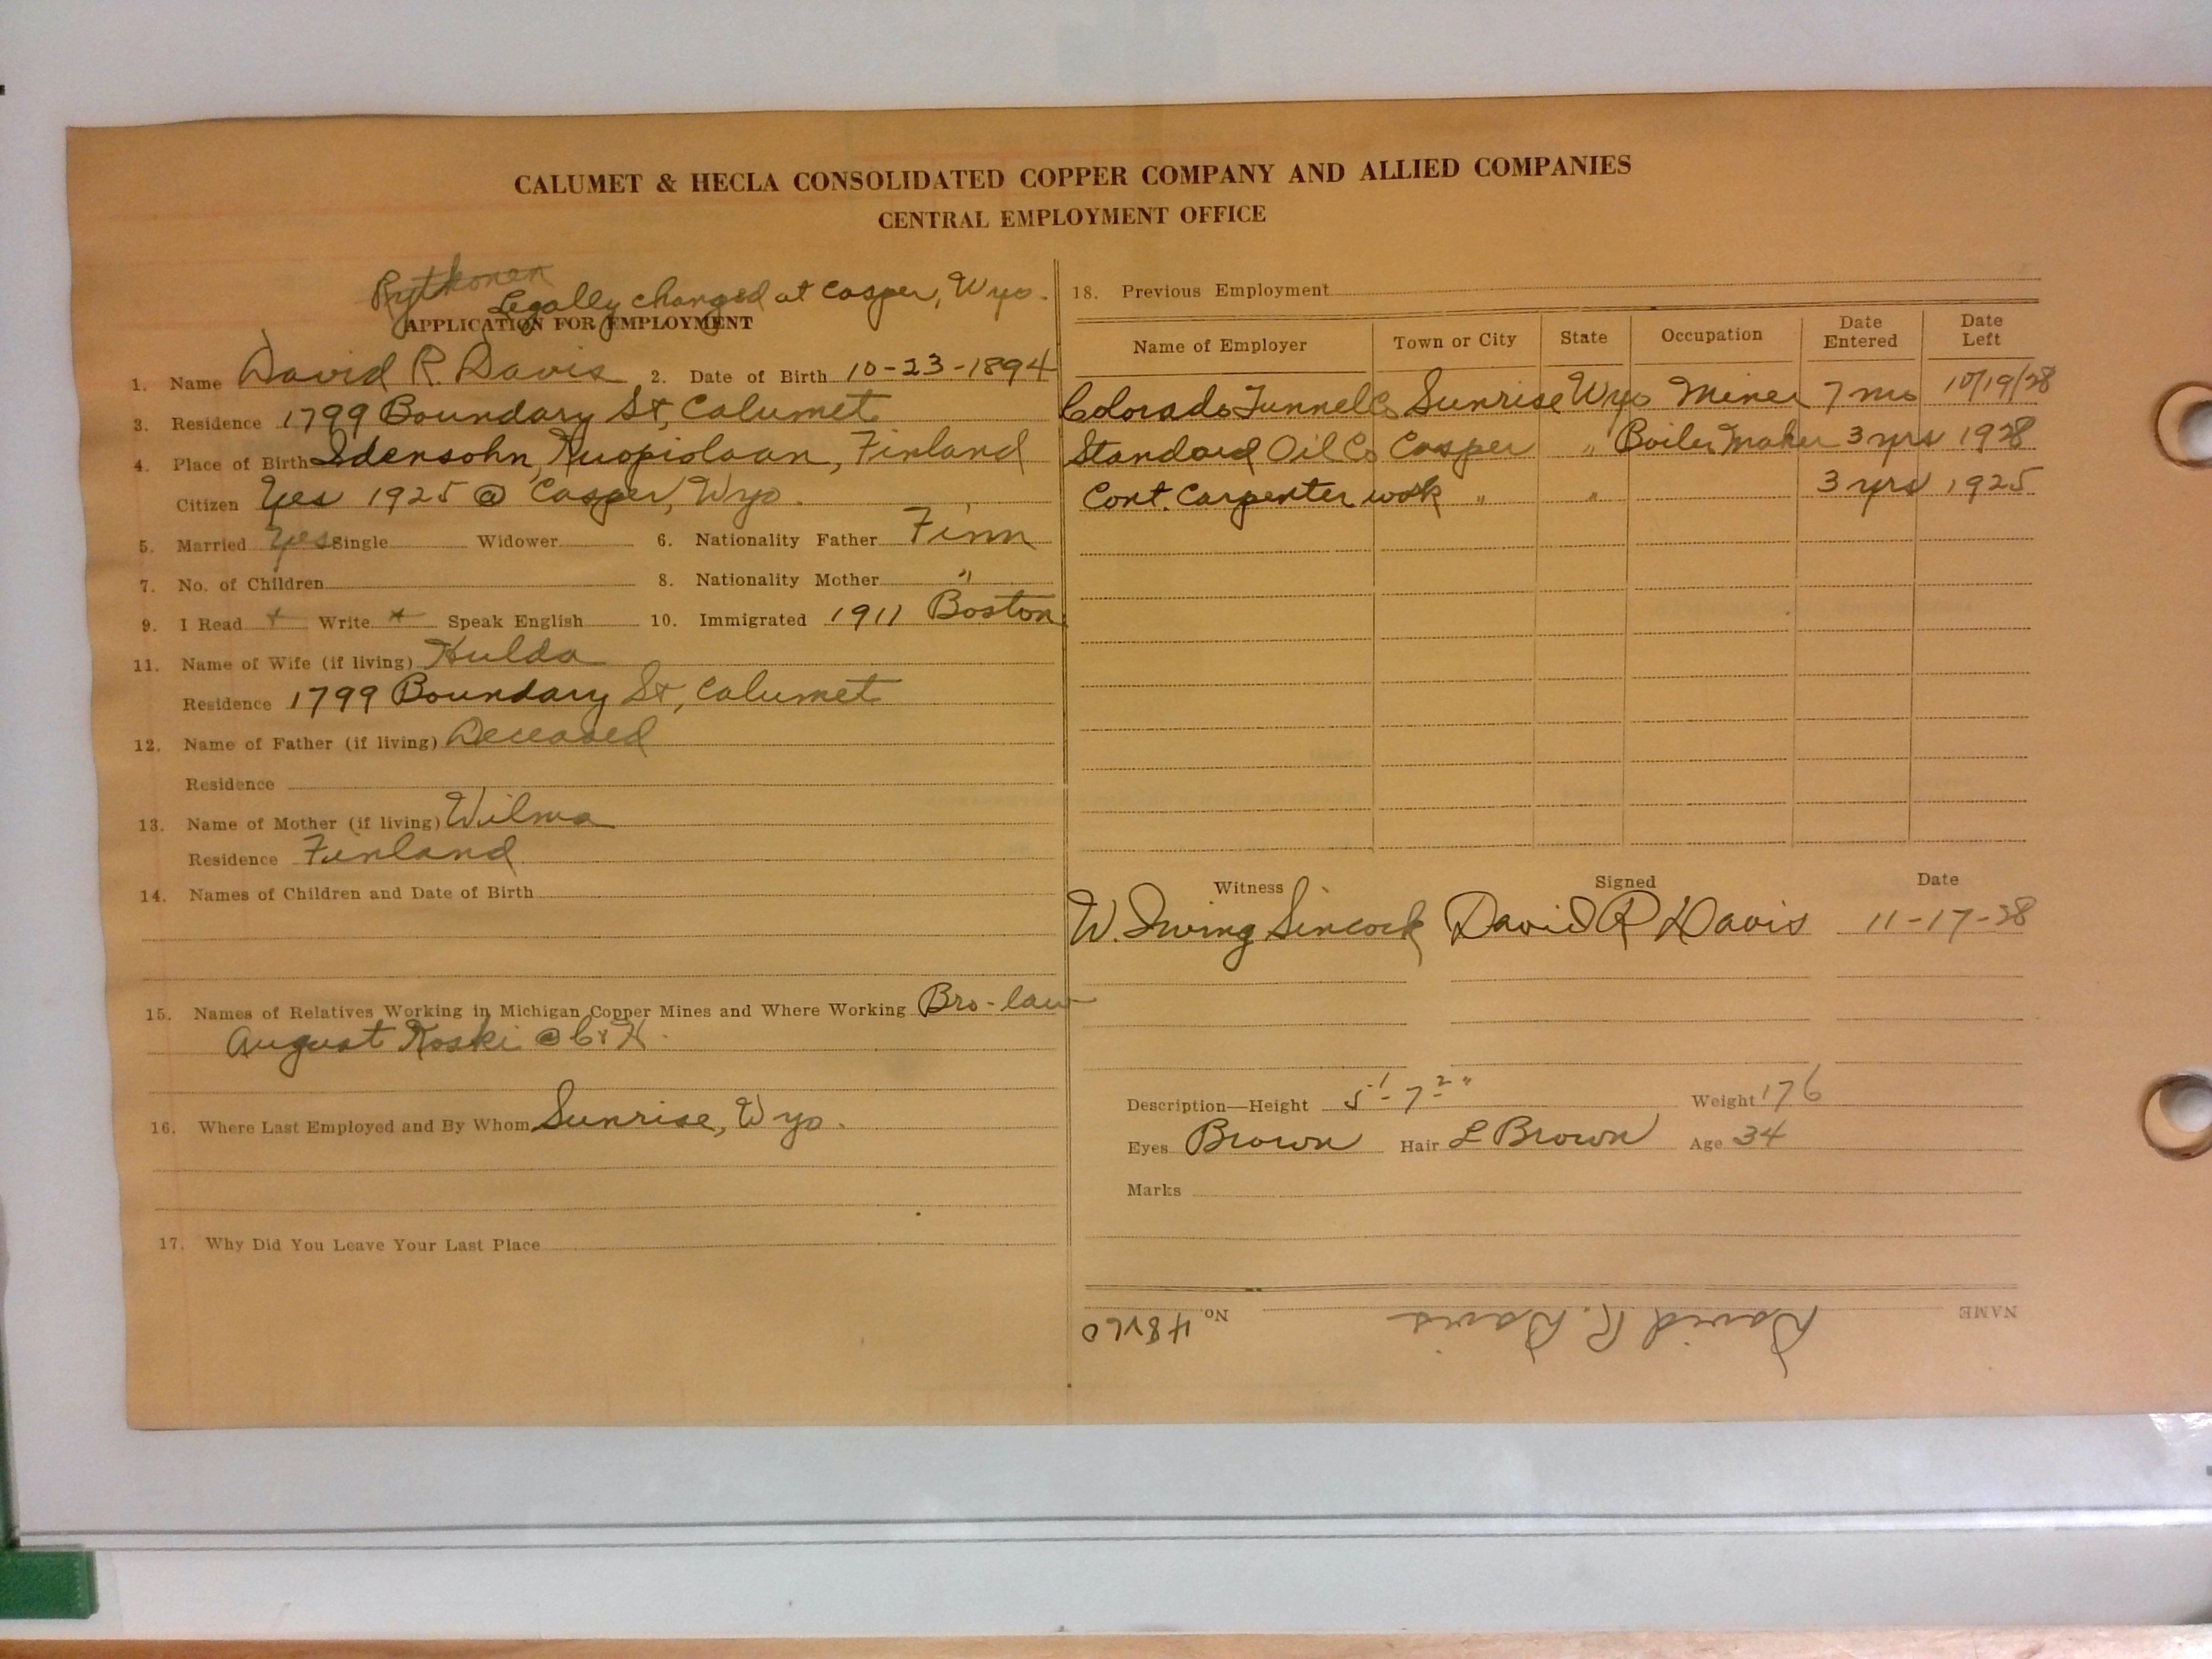 CALUMET & HECLA CONSOLIDATED COPPER COMPANY AND ALLIED COMPANIES
CENTRAL EMPLOYMENT OFFICE
Rytkonen
Legally changed at Casper, Wyo.
APPLICATION FOR EMPLOYMENT
1. Name David R. Davis 2. Date of Birth 10-23-1894
3. Residence 1799 Boundary St, Calumet
4. Place of Birth Idensohn, Kuopiolaan, Finland
Citizen Yes 1925 @ Casper, Wyo.
5. Married Yes Single Widower 6. Nationality Father Finn
7. No. of Children 8. Nationality Mother "
9. I Read + Write + Speak English 10. Immigrated 1911 Boston
11. Name of Wife (if living) Hulda
Residence 1799 Boundary St, Calumet
12. Name of Father (if living) Deceased
Residence
13. Name of Mother (if living) Wilma
Residence Finland
14. Names of Children and Date of Birth
15. Names of Relatives Working in Michigan Copper Mines and Where Working Bro-law
August Koski @ C & H.
16. Where Last Employed and By Whom Sunrise, Wyo.
17. Why Did You Leave Your Last Place
18. Previous Employment
Name of Employer Town or City State Occupation Date Entered Date Left
Colorado Tunnel Co Sunrise Wyo Miner 7 mo 10/19/28
Standard Oil Co Casper " Boiler Maker 3 yrs 1928
Cont. Carpenter work " " 3 yrs 1925
Witness Signed Date
W. Irving Sincock David R Davis 11-17-28
Description—Height 5'-7 2" Weight 176
Eyes Brown Hair L Brown Age 34
Marks
NAME David R. Davis No.